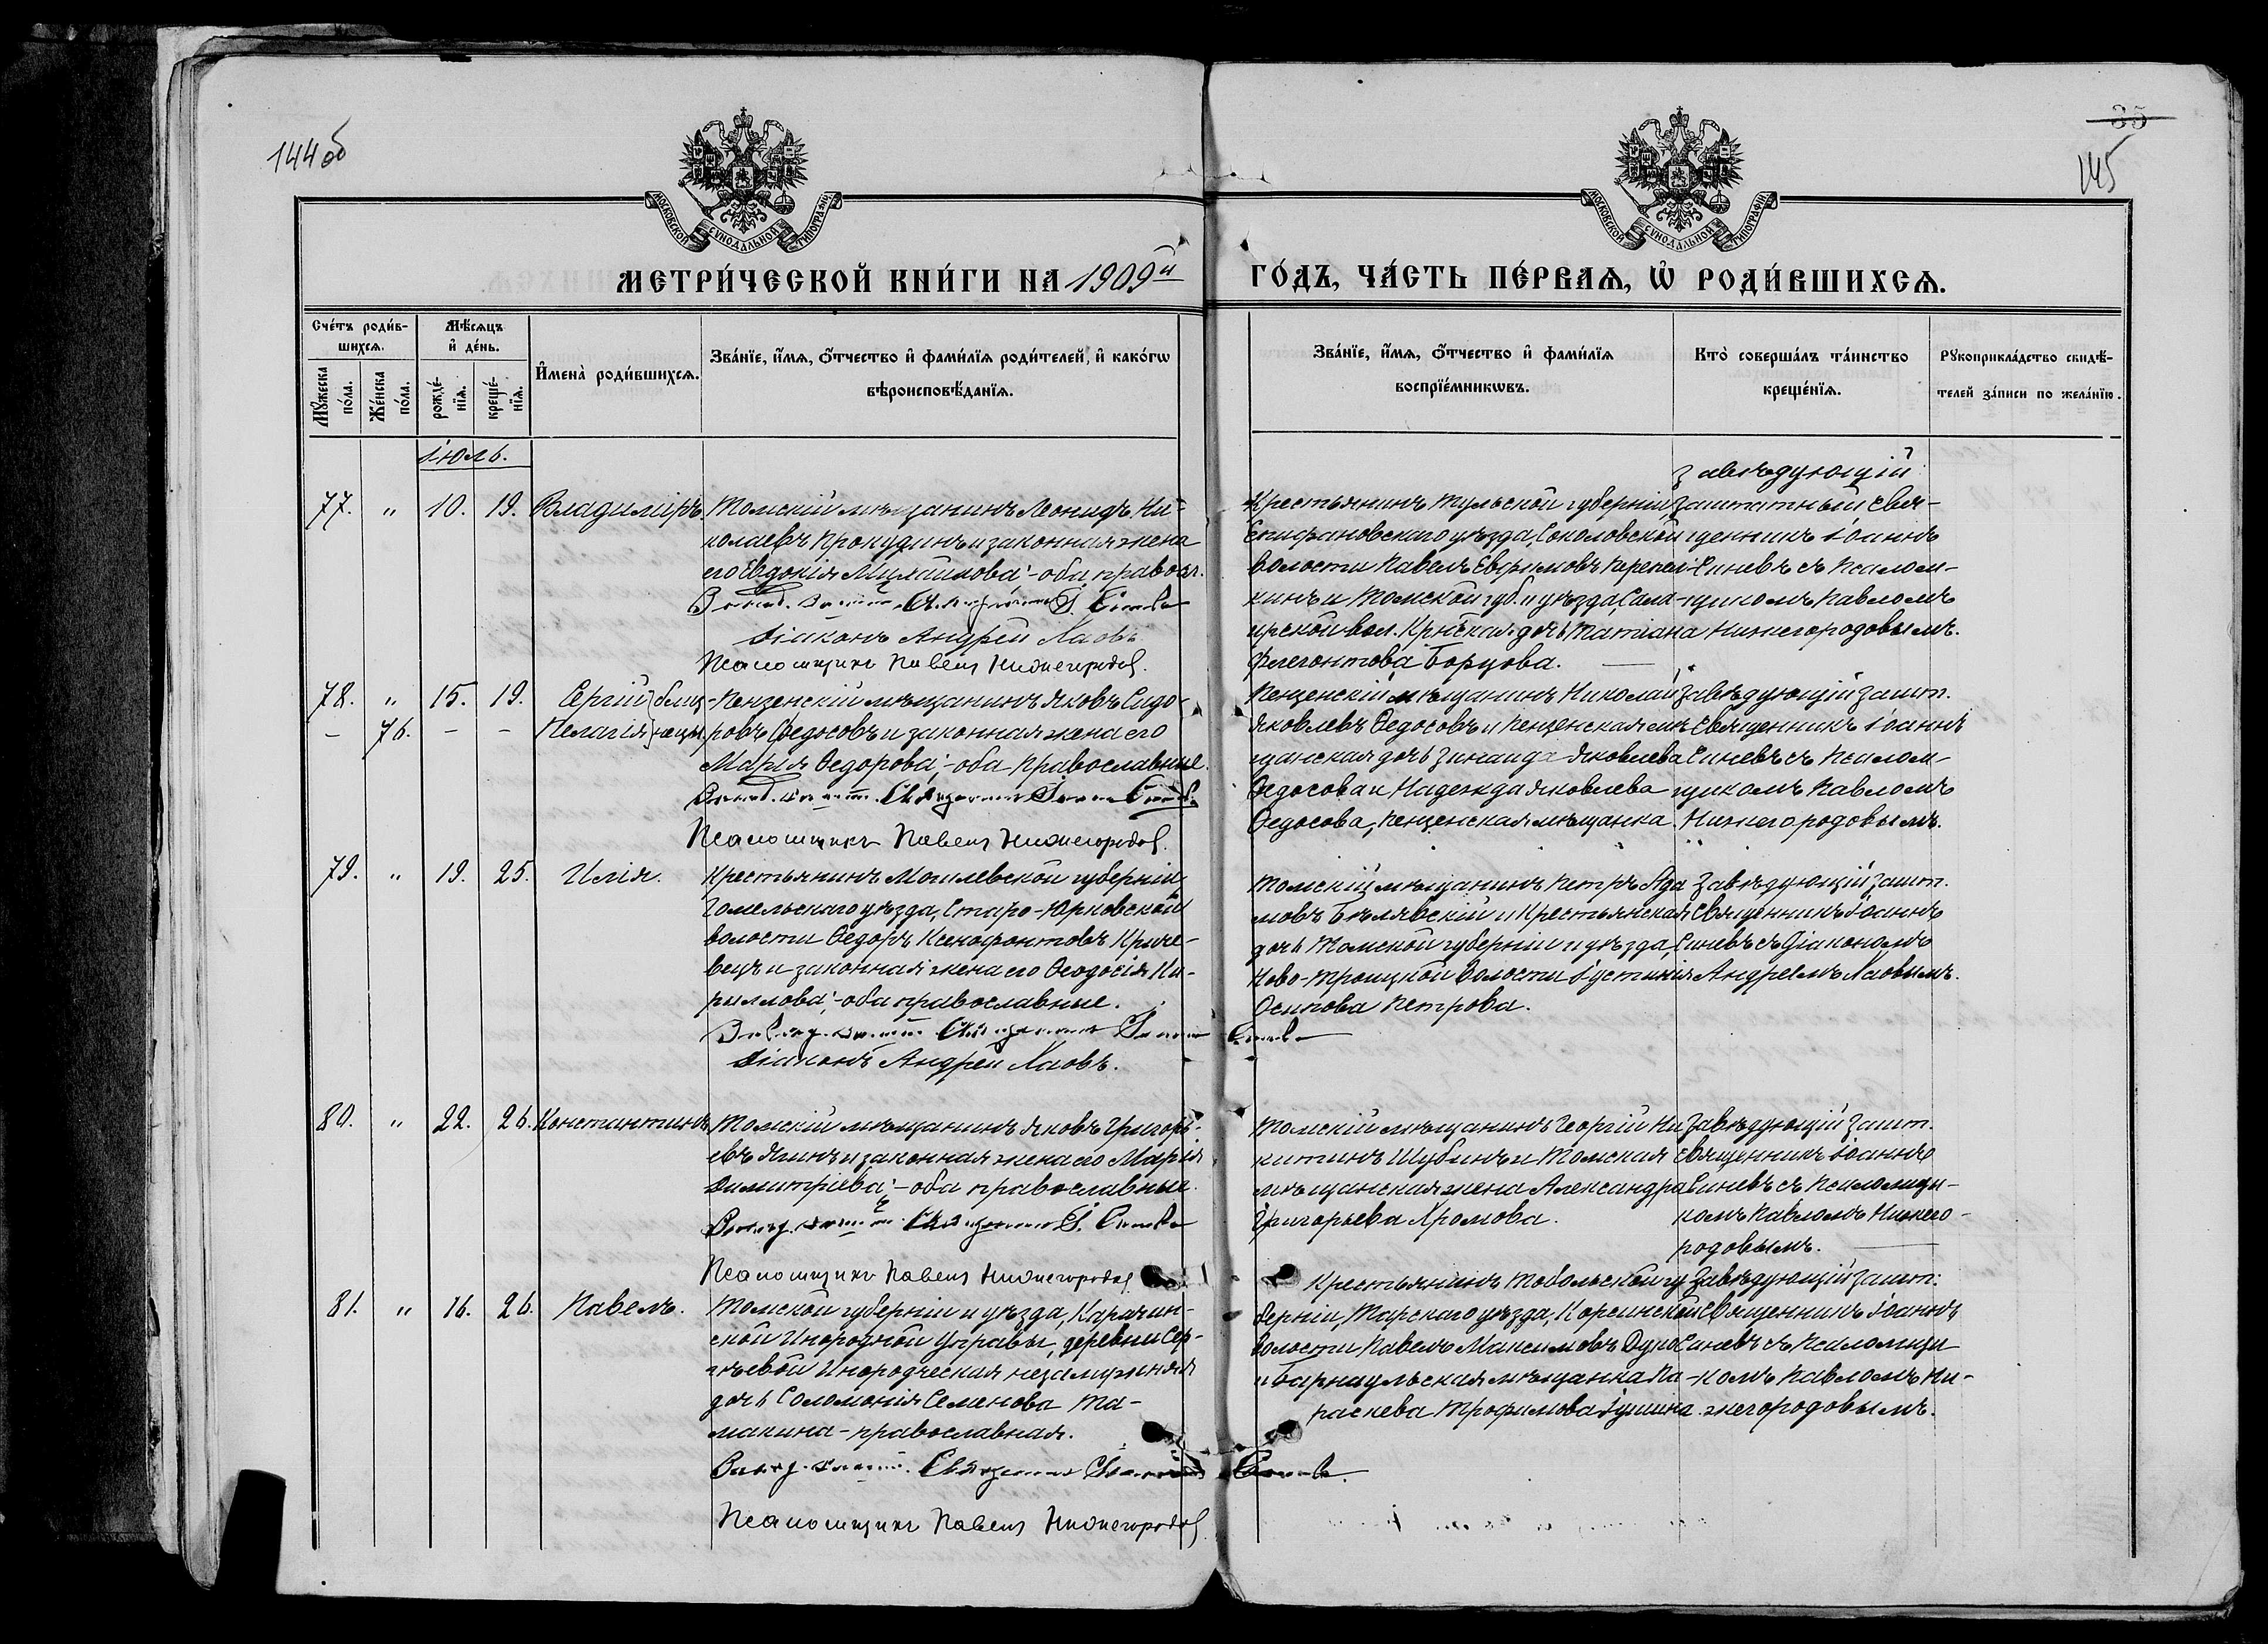 144 об
35
145
МОСКОВСКОЙ СѴНОДАЛЬНОЙ ТИПОГРАФІИ
МОСКОВСКОЙ СѴНОДАЛЬНОЙ ТИПОГРАФІИ
МЕТРИ́ЧЕСКОЙ КНИ́ГИ НА 1909й ГО́ДЪ, ЧА́СТЬ ПЕ́РВАѦ, Ѡ҆ РОДИ́ВШИХСѦ.
Сче́тъ роди́в-
шихсѧ.
Мѣ́сѧцъ
и҆ де́нь.
Мꙋ́жеска по́ла.
Же́нска по́ла.
рожде́-
нїѧ.
креще́-
нїѧ.
И҆мена̀ роди́вшихсѧ.
Зва́нїе, и҆́мѧ, ѻ҆́тчество и҆ фами́лїѧ роди́телей, и҆ како́гѡ
вѣроисповѣ́данїѧ.
Зва́нїе, и҆́мѧ, ѻ҆́тчество и҆ фами́лїѧ
воспрїе́мникѡвъ.
Кто̀ соверша́лъ та́инство
креще́нїѧ.
Рꙋкоприкла́дство свидѣ́-
телей за́писи по жела́нїю.
Іюль.
77. " 10. 19. Владиміръ.
Томскій мѣщанинъ Леонидъ Ни-
колаевъ Прокудинъ и законная жена
его Евдокія Михайлова; - оба правосл.
Діаконъ Андрей Хаовъ
Псаломщикъ Павелъ Нижегородов.
Крестьянинъ Тульской губерніи,
Епифановскаго уѣзда, Соколовской
волости Павелъ Ефимовъ
и Томской губ. и уѣзда,
вол. Кр. дочь Татіана
Флегонтова Борцова.
Завѣдующій
заштатный свя-
щенникъ Іоаннъ
Синевъ съ псалом-
щикомъ Павломъ
Нижегородовымъ.
78. " 15. 19. Сергій } близ-
- 76. - - Пелагія } нецы.
Пензенскій мѣщанинъ Яковъ Сидо-
ровъ Ѳедосовъ и законная жена его
Марія Ѳедорова; - оба православные.
Псаломщикъ Павелъ Нижегородов.
Пензенскій мѣщанинъ Николай
Яковлевъ Ѳедосовъ и Пензенская мѣ-
щанская дочь Зинаида Яковлева
Ѳедосова и Надежда Яковлева
Ѳедосова, Пензенская мѣщанка.
Завѣдующій зашт.
священникъ Іоаннъ
Синевъ съ псалом-
щикомъ Павломъ
Нижегородовымъ.
79. " 19. 25. Илія.
Крестьянинъ Могилевской губерніи,
Гомельскаго уѣзда, Старо-Юрковской
волости Ѳедоръ Ксенофонтовъ Криче-
вецъ и законная жена его Ѳеодосія Ки-
риллова; - оба православные.
Діаконъ Андрей Хаовъ.
Томскій мѣщанинъ Петръ Ада-
мовъ Бѣлявскій и Крестьянская
дочь Томской губерніи и уѣзда,
Ново-Троицкой волости Іустинія
Осипова Петрова.
Завѣдующій зашт.
священникъ Іоаннъ
Синевъ съ діакономъ
Андреемъ Хаовымъ.
80. " 22. 26. Константинъ.
Томскій мѣщанинъ Яковъ Григорь-
евъ Ягинъ и законная жена его Марія
Димитріева; - оба православные.
Псаломщикъ Павелъ Нижегородов
Томскій мѣщанинъ Георгій Ни-
китинъ Шубинъ и Томская
мѣщанская жена Александра
Григорьева Хромова.
Завѣдующій зашт.
священникъ Іоаннъ
Синевъ съ псаломщи-
комъ Павломъ Нижего-
родовымъ.
81. " 16. 26. Павелъ.
Томской губерніи и уѣзда,
ской Инородной Управы, деревни Сер-
гѣевой инородческая незамужняя
дочь Соломонія Семенова Та-
макина - православная.
Псаломщикъ Павелъ Нижегородов
Крестьянинъ Тобольской гу-
берніи, Тарскаго уѣзда,
волости Павелъ Максимовъ
и Барнаульская мѣщанка Па-
раскева Трофимова
Завѣдующій зашт.
священникъ Іоаннъ
Синевъ съ псаломщи-
комъ Павломъ Ни-
жегородовымъ.